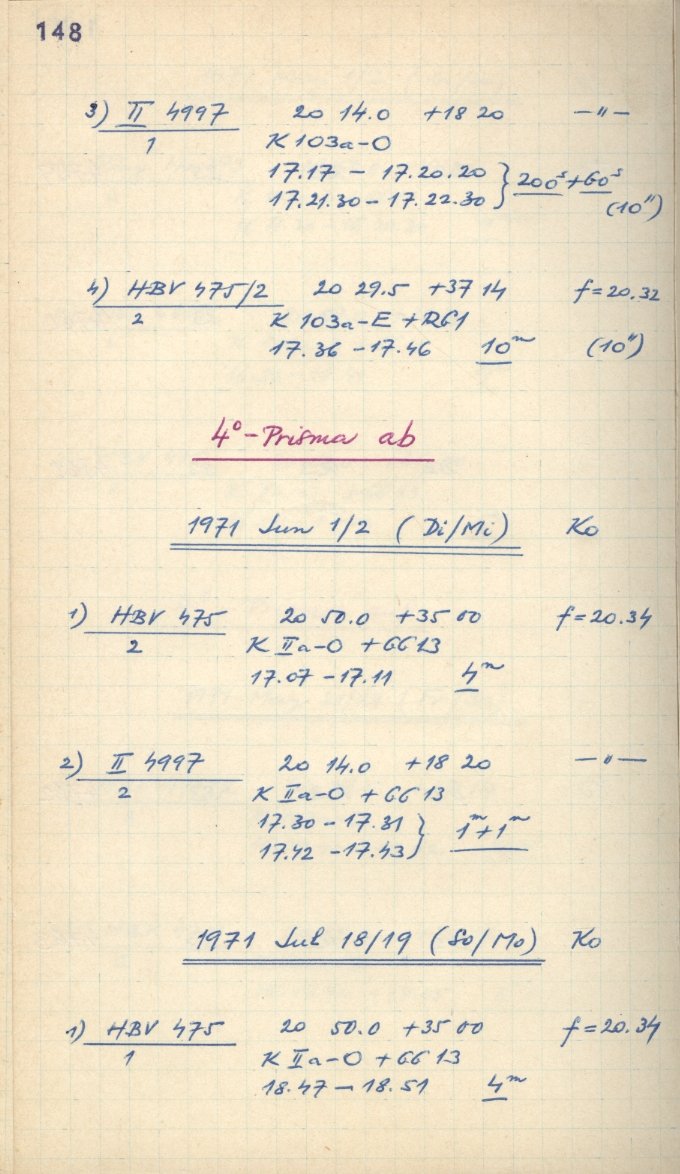 148
3) II 4997 20 14.0 +18 20 —〃—
1 K 103a-O
17.17 – 17.20.20 } 200ˢ+60ˢ
17.21.30 – 17.22.30 (10")
4) HBV 475/2 20 29.5 +37 14 f=20.32
2 K 103a-E + RG1
17.36 – 17.46 10ᵐ (10")
4°-Prisma ab
1971 Jun 1/2 (Di/Mi) Ko
1) HBV 475 20 50.0 +35 00 f=20.34
2 K IIa-O + GG 13
17.07 – 17.11 4ᵐ
2) II 4997 20 14.0 +18 20 —〃—
2 K IIa-O + GG 13
17.30 – 17.31 } 1ᵐ+1ᵐ
17.42 – 17.43
1971 Jul 18/19 (So/Mo) Ko
1) HBV 475 20 50.0 +35 00 f=20.34
1 K IIa-O + GG 13
18.47 – 18.51 4ᵐ